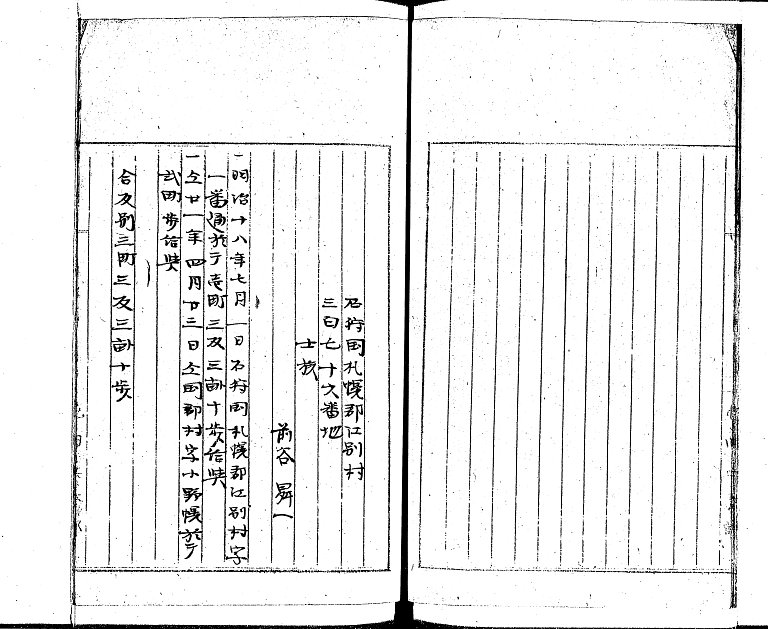 石狩国札幌郡江別村
三百七十六番地
士族
前谷昇一
一明治十八年七月一日石狩国札幌郡江別村字
一番通於テ壱町三反三畝十歩給与
一仝廿一年四月廿三日仝国郡村字小野幌於テ
弐町歩給与
合反別三町三反三畝十歩